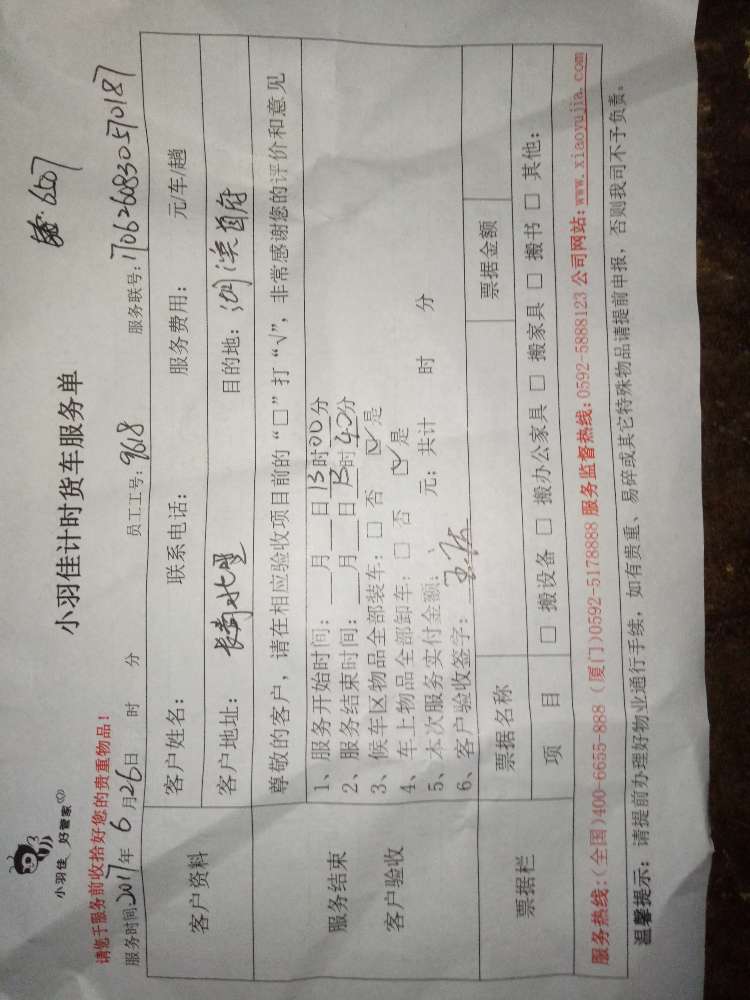 小羽佳 好管家
6507
小羽佳计时货车服务单
请您于服务前收拾好您的贵重物品！
服务时间2017年6月26日 时 分 员工工号：9618 服务联号：1706260830570187
客户资料
客户姓名： 联系电话： 服务费用： 元/车/趟
客户地址：长寿北里 目的地：首府
尊敬的客户，请在相应验收项目前的“□”打“√”，非常感谢您的评价和意见
服务结束
客户验收
1、服务开始时间：__月__日13时00分
2、服务结束时间：__月__日13时40分
3、候车区物品全部装车：□ 否 ☑ 是
4、车上物品全部卸车：□ 否 ☑ 是
5、本次服务实付金额： 元；共计 时 分
6、客户验收签字：
票据栏
票据名称 票据金额
项 目 □ 搬设备 □ 搬办公家具 □ 搬家具 □ 搬书 □ 其他：
服务热线：(全国)400-6655-888 (厦门)0592-5178888 服务监督热线：0592-5888123 公司网站：www.xiaoyujia.com
温馨提示：请提前办理好物业通行手续，如有贵重、易碎或其它特殊物品请提前申报，否则我司不予负责。